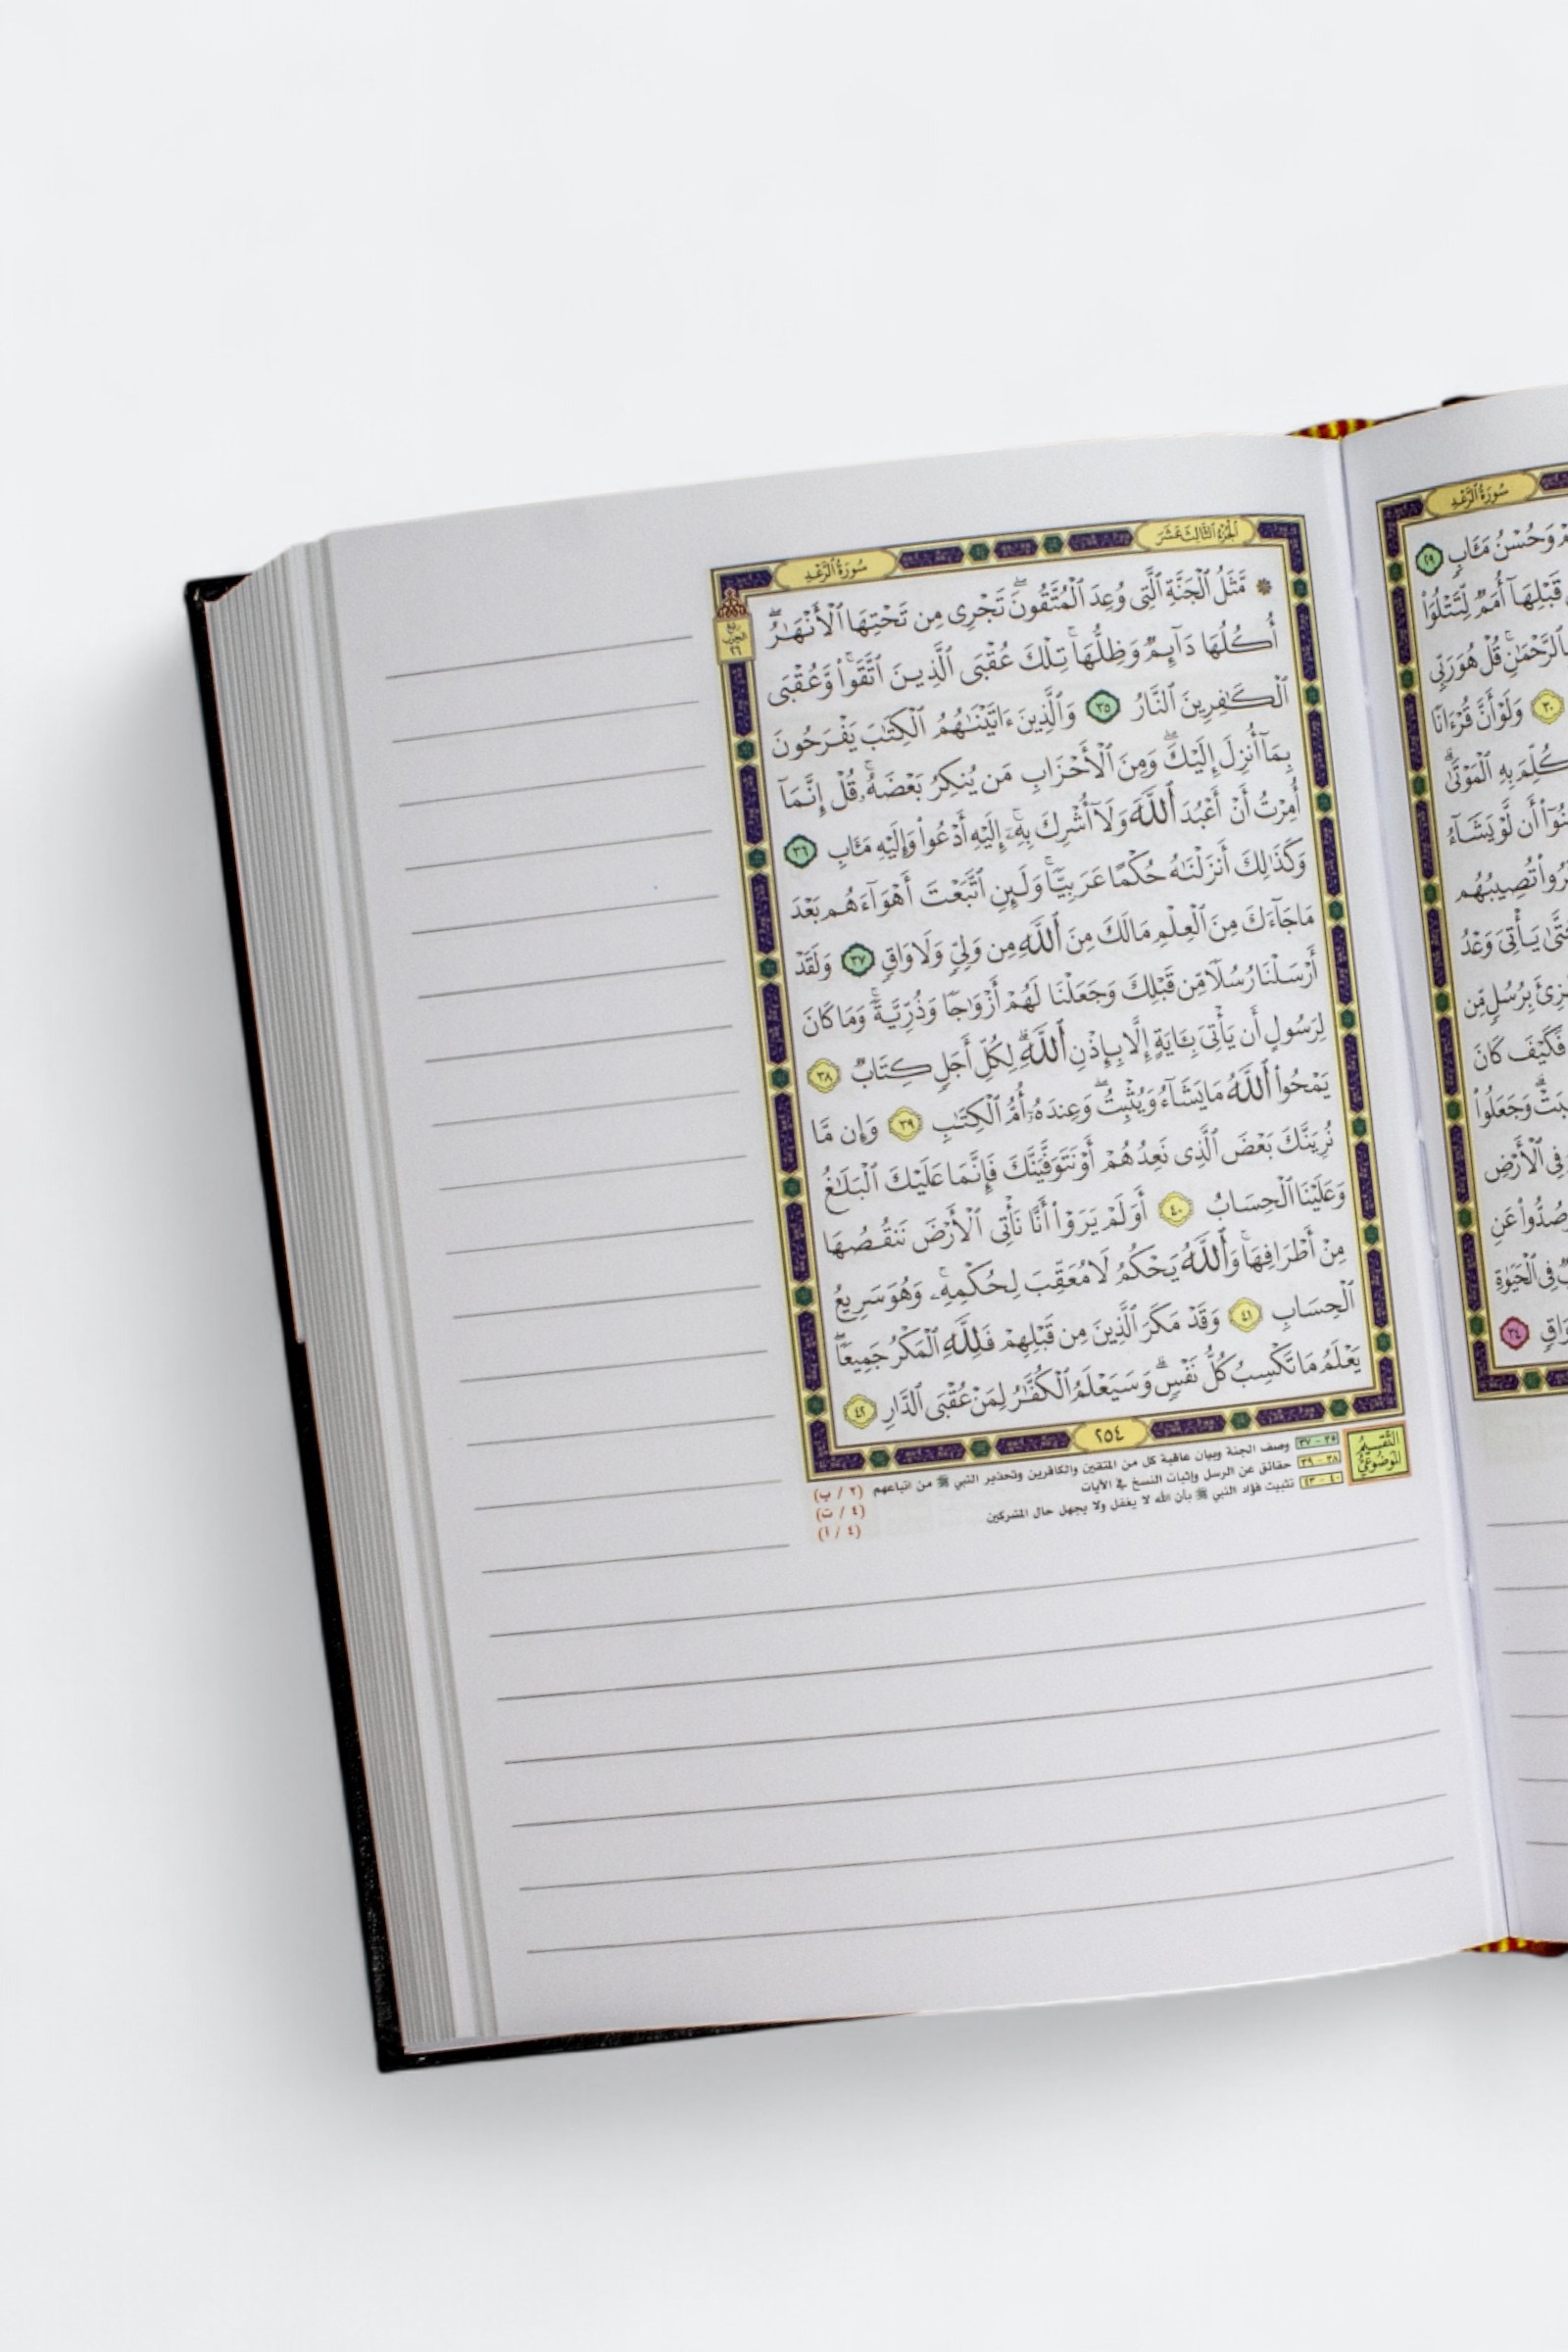 سُورَةُ الرَّعْدِ
مْ وَحُسْنُ مَـَٔابٍ ٢٩
قَبْلِهَآ أُمَمٌ لِّتَتْلُوَا۟
بِٱلرَّحْمَٰنِ ۚ قُلْ هُوَ رَبِّى
٣٠ وَلَوْ أَنَّ قُرْءَانًا
كُلِّمَ بِهِ ٱلْمَوْتَىٰ ۗ
أَن لَّوْ يَشَآءُ
تُصِيبُهُم
يَأْتِىَ وَعْدُ
بِرُسُلٍ مِّن
فَكَيْفَ كَانَ
وَجَعَلُوا۟
فِى ٱلْأَرْضِ
وَصُدُّوا۟ عَنِ
فِى ٱلْحَيَوٰةِ
وَاقٍ ٣٤
الجُزْءُ الثَّالِثَ عَشَرَ
سُورَةُ الرَّعْدِ
ربع
الحزب
٢٦
۞ مَّثَلُ ٱلْجَنَّةِ ٱلَّتِى وُعِدَ ٱلْمُتَّقُونَ ۖ تَجْرِى مِن تَحْتِهَا ٱلْأَنْهَٰرُ ۖ
أُكُلُهَا دَآئِمٌ وَظِلُّهَا ۚ تِلْكَ عُقْبَى ٱلَّذِينَ ٱتَّقَوا۟ ۖ وَّعُقْبَى
ٱلْكَٰفِرِينَ ٱلنَّارُ ٣٥ وَٱلَّذِينَ ءَاتَيْنَٰهُمُ ٱلْكِتَٰبَ يَفْرَحُونَ
بِمَآ أُنزِلَ إِلَيْكَ ۖ وَمِنَ ٱلْأَحْزَابِ مَن يُنكِرُ بَعْضَهُۥ ۚ قُلْ إِنَّمَآ
أُمِرْتُ أَنْ أَعْبُدَ ٱللَّهَ وَلَآ أُشْرِكَ بِهِۦٓ ۚ إِلَيْهِ أَدْعُوا۟ وَإِلَيْهِ مَـَٔابِ ٣٦
وَكَذَٰلِكَ أَنزَلْنَٰهُ حُكْمًا عَرَبِيًّا ۚ وَلَئِنِ ٱتَّبَعْتَ أَهْوَآءَهُم بَعْدَ
مَا جَآءَكَ مِنَ ٱلْعِلْمِ مَا لَكَ مِنَ ٱللَّهِ مِن وَلِىٍّ وَلَا وَاقٍ ٣٧ وَلَقَدْ
أَرْسَلْنَا رُسُلًا مِّن قَبْلِكَ وَجَعَلْنَا لَهُمْ أَزْوَٰجًا وَذُرِّيَّةً ۚ وَمَا كَانَ
لِرَسُولٍ أَن يَأْتِىَ بِـَٔايَةٍ إِلَّا بِإِذْنِ ٱللَّهِ ۗ لِكُلِّ أَجَلٍ كِتَابٌ ٣٨
يَمْحُوا۟ ٱللَّهُ مَا يَشَآءُ وَيُثْبِتُ ۖ وَعِندَهُۥٓ أُمُّ ٱلْكِتَٰبِ ٣٩ وَإِن مَّا
نُرِيَنَّكَ بَعْضَ ٱلَّذِى نَعِدُهُمْ أَوْ نَتَوَفَّيَنَّكَ فَإِنَّمَا عَلَيْكَ ٱلْبَلَٰغُ
وَعَلَيْنَا ٱلْحِسَابُ ٤٠ أَوَلَمْ يَرَوْا۟ أَنَّا نَأْتِى ٱلْأَرْضَ نَنقُصُهَا
مِنْ أَطْرَافِهَا ۚ وَٱللَّهُ يَحْكُمُ لَا مُعَقِّبَ لِحُكْمِهِۦ ۚ وَهُوَ سَرِيعُ
ٱلْحِسَابِ ٤١ وَقَدْ مَكَرَ ٱلَّذِينَ مِن قَبْلِهِمْ فَلِلَّهِ ٱلْمَكْرُ جَمِيعًا ۖ
يَعْلَمُ مَا تَكْسِبُ كُلُّ نَفْسٍ ۗ وَسَيَعْلَمُ ٱلْكُفَّٰرُ لِمَنْ عُقْبَى ٱلدَّارِ ٤٢
٢٥٤
التَّقسِيمُ
المَوضُوعِيُّ
٣٥ - ٣٧ وصف الجنة وبيان عاقبة كل من المتقين والكافرين وتحذير النبي ﷺ من اتباعهم (٢ / ب)
٣٨ - ٣٩ حقائق عن الرسل وإثبات النسخ في الآيات (٤ / ت)
٤٠ - ٤٣ تثبيت فؤاد النبي ﷺ بأن الله لا يغفل ولا يجهل حال المشركين (٤ / أ)